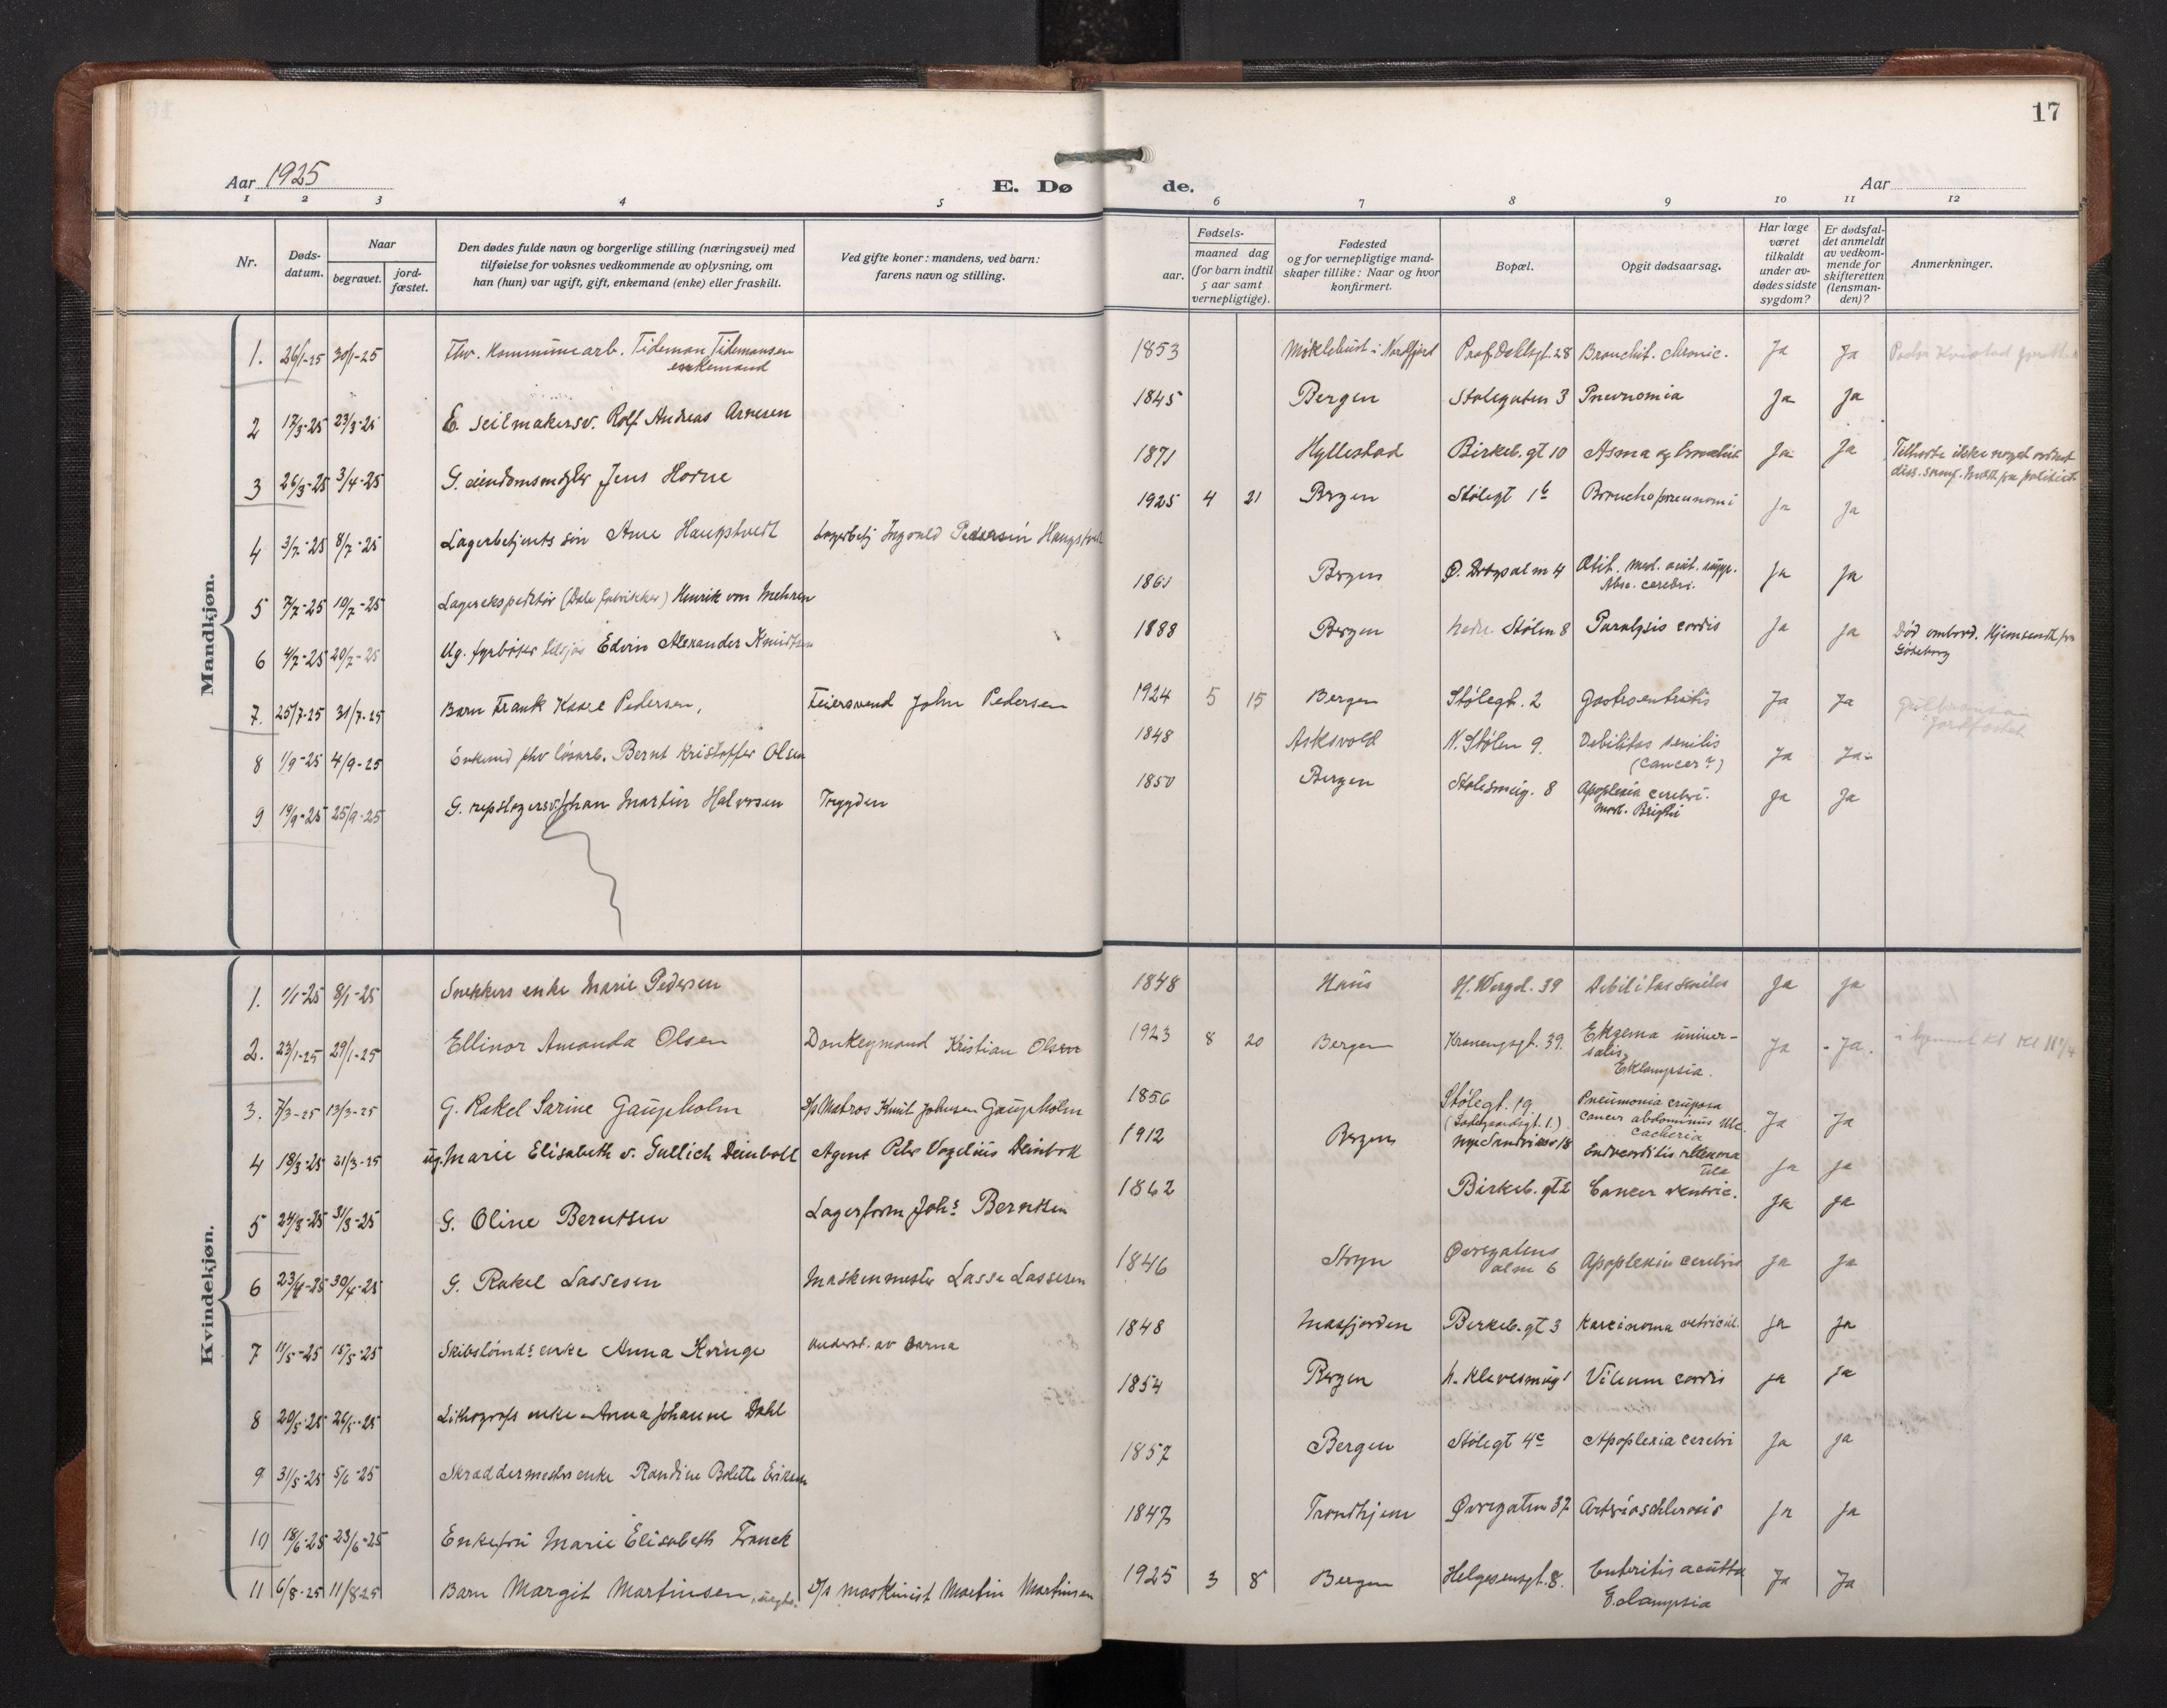 17
Aar 1925
E. Dø
de.
Aar
1 2 3 4 5 6 7 8 9 10 11 12
Nr.
Døds-
datum.
Naar
begravet.
jord-
fæstet.
Den dødes fulde navn og borgerlige stilling (næringsvei) med
tilføielse for voksnes vedkommende av oplysning, om
han (hun) var ugift, gift, enkemand (enke) eller fraskilt.
Ved gifte koner: mandens, ved barn:
farens navn og stilling.
Fødsels-
aar.
maaned dag
(for barn indtil
5 aar samt
vernepligtige).
Fødested
og for vernepligtige mand-
skaper tillike: Naar og hvor
konfirmert.
Bopæl.
Opgit dødsaarsag.
Har læge
været
tilkaldt
under av-
dødes sidste
sygdom?
Er dødsfal-
det anmeldt
av vedkom-
mende for
skifteretten
(lensman-
den)?
Anmerkninger.
Mandkjøn.
1. 26/1-25 30/1-25 Fhv. Kommunearb. Tideman Tidemansen 1853 Myklebust i Nordfjord Prof. Dahlsgt. 28 Bronchit. chronic. Ja Ja
enkemand
2 17/3-25 23/3-25 E. Seilmakersv. Rolf Andreas Arnesen 1845 Bergen Stølegaten 3 Pneumonia Ja Ja
3 26/3-25 3/4-25 G. eiendomsmægler Jens Horne 1871 Hyllestad Birkeb. gt 10 Asma og Ja Ja Tilhørte ikke noget ordnet
4 3/7-25 8/7-25 Lagerbetjents søn Arne Haugstvedt Lagerbetj Ingvald Pedersen Haugstvedt 1925 4 21 Bergen Stølegt 1b Bronchopneunomi Ja Ja
5 7/7-25 10/7-25 Lagerekspeditør (Dale fabrikker) Henrik von Mehren 1861 Bergen Ø. Dregsalm 4 Otit. med. acut. supp. Ja Ja
Absc. cerebri.
6 4/7-25 20/7-25 Ug. fyrbøter tilsjøs Edvin Alexander Knudtsen 1888 Bergen Nedre Stølen 8 Paralysis cordis Ja Ja Død ombord. Hjemsendt fra
Göteborg
7. 25/7-25 31/7-25 Barn Frank Kaare Pedersen, Feiersvend John Pedersen 1924 5 15 Bergen Stølegt. 2 Gastroentritis Ja Ja
jordfæstet
8 1/9-25 4/9-25 Enkemd fhv løsarb. Bernt Kristoffer Olsen 1848 Askvold N. Stølen 9. Debilitas senilis Ja Ja
(cancer?)
9 19/9-25 25/9-25 G. repslagersv. Johan Martin Halvorsen Trygden 1850 Bergen Stølesmug. 8 Apoplexia cerebri. Ja Ja
Morb. Brighti
Kvindekjøn.
1. 1/1-25 8/1-25 Snekkers enke Marie Pedersen 1848 Haus H. Wergel. 39 Debilitas senilis Ja Ja
2. 23/1-25 29/1-25 Ellinor Amanda Olsen Donkeymand Kristian Olsen 1923 8 20 Bergen Kronengsgt. 39. Ekzema univer- Ja Ja.
salis,
Eklampsia.
3. 7/3-25 13/3-25 G. Rakel Sarine Gaupholm D/s Matros Knut Johnsen Gaupholm 1856 Stølegt. 19 Pneumonia cruposa Ja Ja
(Ladegaardsgt. 1.) Cancer abdominus
cacheria
4 18/3-25 21/3-25 ug. Marie Elisabeth v. Gullich Deinboll Agent Peter Vogelius Deinboll 1912 Bergen Nye Sandviksv 18 Endocarditis Ja Ja
5 24/3-25 31/3-25 G. Oline Berntsen Lagerform. Johs Berntsen 1862 Birkeb. gt 2 Cancer ventric. Ja Ja
6 23/4-25 30/4-25 G. Rakel Lassesen Maskinmester Lasse Lassesen 1846 Stryn Øvregatens Apoplexia cerebris Ja Ja
alm 6
7 11/5-25 15/5-25 Skibstømds enke Anna Kvinge Underst. av barna 1848 Masfjorden Birkeb. gt 3 Karcinoma vetricul. Ja Ja
8 20/5-25 26/5-25 Lithografs enke Anna Johanne Dahl 1854 Bergen N. Klevesmug 1 Vitium cordis Ja Ja
9 31/5-25 5/6-25 Skræddermesters enke Randine Bolette Eriksen 1857 Bergen Stølegt 4c Apoplexia cerebri Ja Ja
10 18/6-25 23/6-25 Enkefru Marie Elisabeth Franck 1847 Trondhjem Øvregaten 37 Arteriosclerosis Ja Ja
11 6/8-25 11/8 25 Barn Margit Martinsen D/s maskinist Martin Martinsen 1925 3 8 Bergen Helgesensgt. 8. Enteritis acutta Ja Ja
Eclampsia